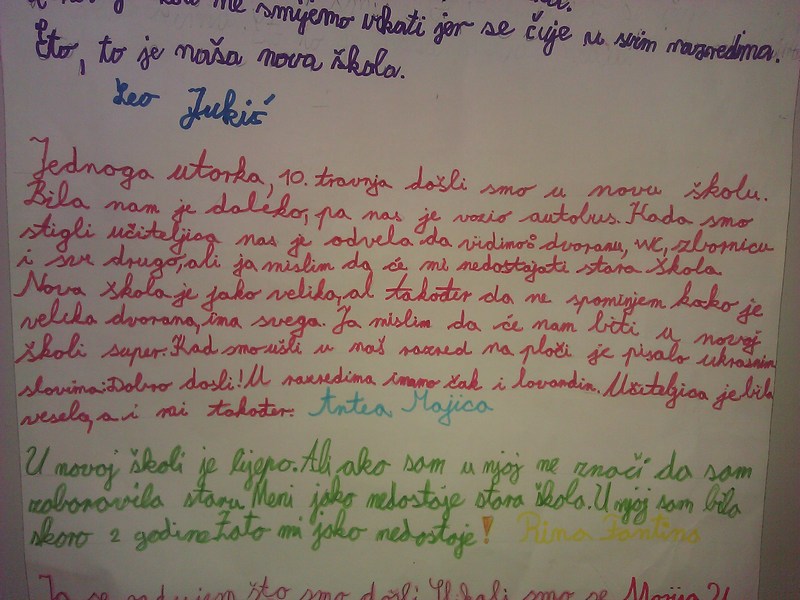 ne smijemo vikati jer se čuje u svim razredima.
Eto, to je naša nova škola.
Leo Jukić
Jednoga utorka, 10. travnja došli smo u novu školu.
Bila nam je daleko, pa nas je vozio autobus. Kada smo
stigli učiteljica nas je odvela da vidimo dvoranu, WC, zbornicu
i sve drugo, ali ja mislim da će mi nedostajati stara škola.
Nova škola je jako velika, al također da ne spominjem kako je
velika dvorana, ima svega. Ja mislim da će nam biti u novoj
školi super. Kad smo ušli u naš razred na ploči je pisalo ukrasnim
slovima: Dobro došli! U razredima imamo čak i lavandin. Učiteljica je bila
vesela, a i mi također. Antea Majica
U novoj školi je lijepo. Ali ako sam u njoj ne znači da sam
zaboravila staru. Meni jako nedostaje stara škola. U njoj sam bila
skoro 2 godine. Zato mi jako nedostaje! Rina Fantina
Ja se radujem što smo došli. Ušli smo se